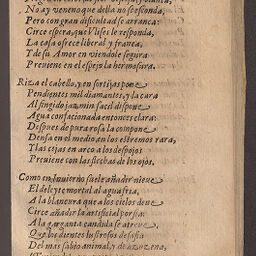 No ay veneno que della no se esconda,
Pero con gran dificultad se arranca:
Circe espera, que Vlises le responda,
La casa ofrece liberal y franca,
Y de su Amor en viendole segura
Preuiene en el espejo la hermosura.
Riza el cabello, y en sortijas pone
Pendientes mil diamantes, y la cara
Al fingido jazmin facil dispone
Agua confacionada entonces clara:
Despues de pura rosa la compone
Densa en el medio, en los estremos rara,
Y las cejas en arco a los despojos
Preuiene con las flechas de los ojos.
Como en Inuierno suele añadir nieue
El del cyerto mortal al agua fria,
A la blancura que a los cielos deue
Circe añadir la artificial porfia:
A la garganta candida se atreue
Que
Del mas sabio animal, y de açucena,